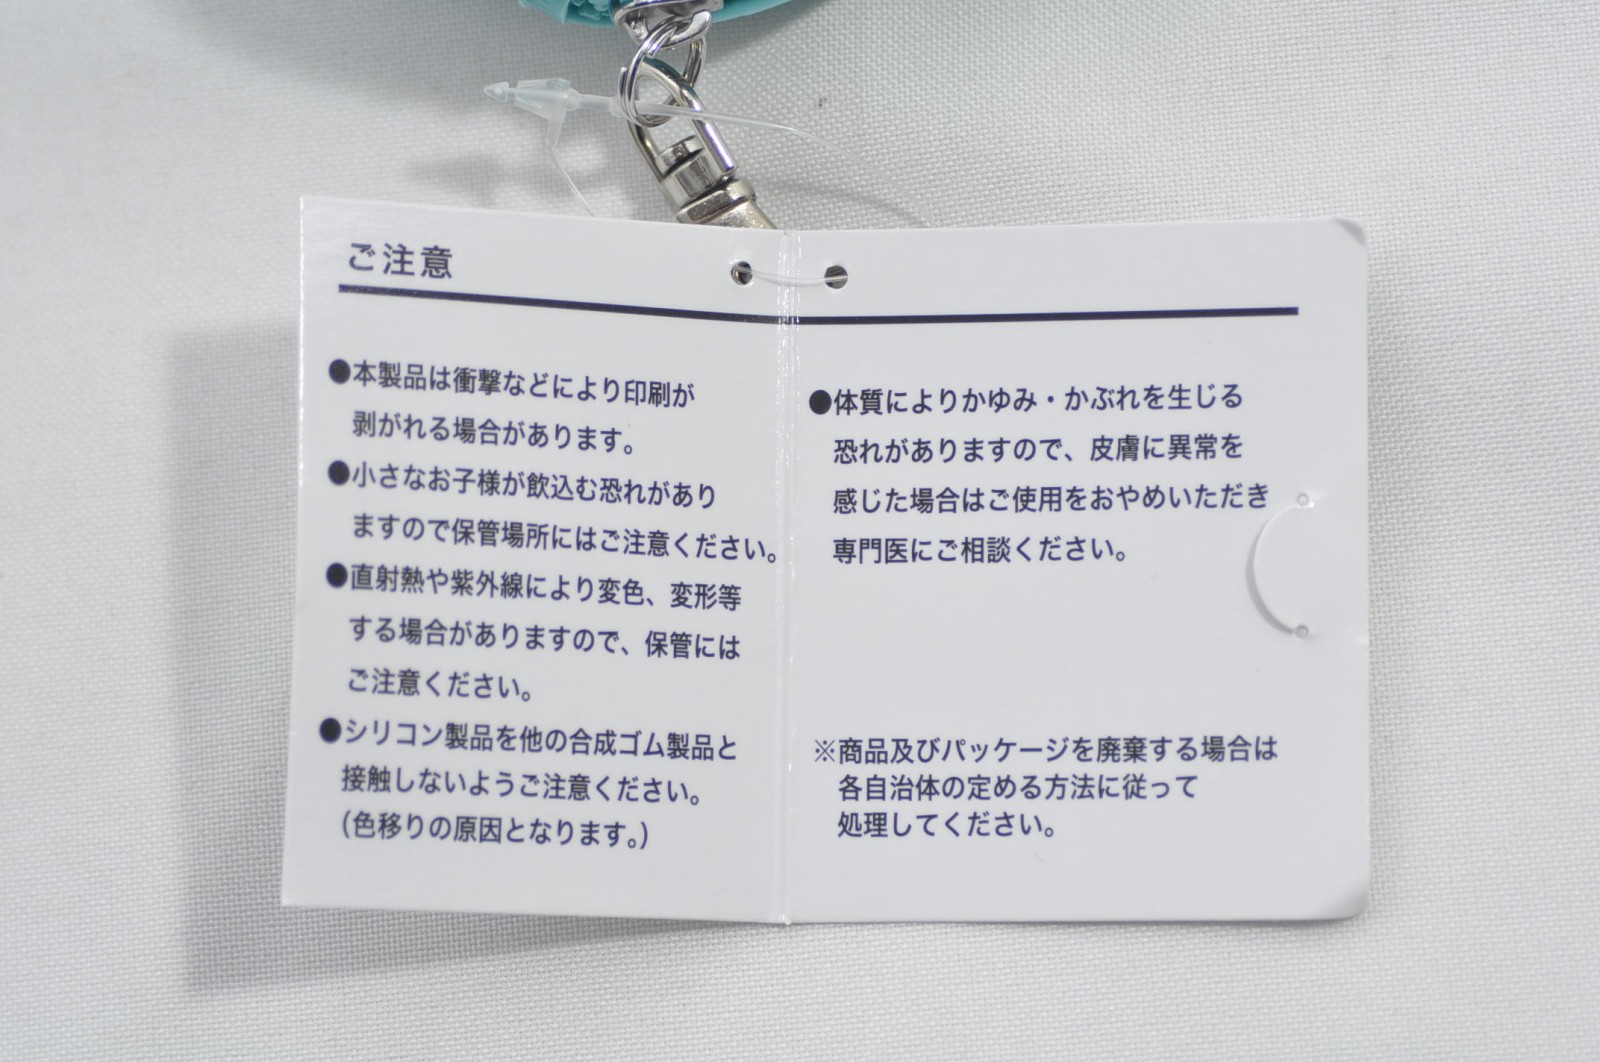 ご注意
●本製品は衝撃などにより印刷が
剥がれる場合があります。
●小さなお子様が飲込む恐れがあり
ますので保管場所にはご注意ください。
●直射熱や紫外線により変色、変形等
する場合がありますので、保管には
ご注意ください。
●シリコン製品を他の合成ゴム製品と
接触しないようご注意ください。
(色移りの原因となります。)
●体質によりかゆみ・かぶれを生じる
恐れがありますので、皮膚に異常を
感じた場合はご使用をおやめいただき
専門医にご相談ください。
※商品及びパッケージを廃棄する場合は
各自治体の定める方法に従って
処理してください。